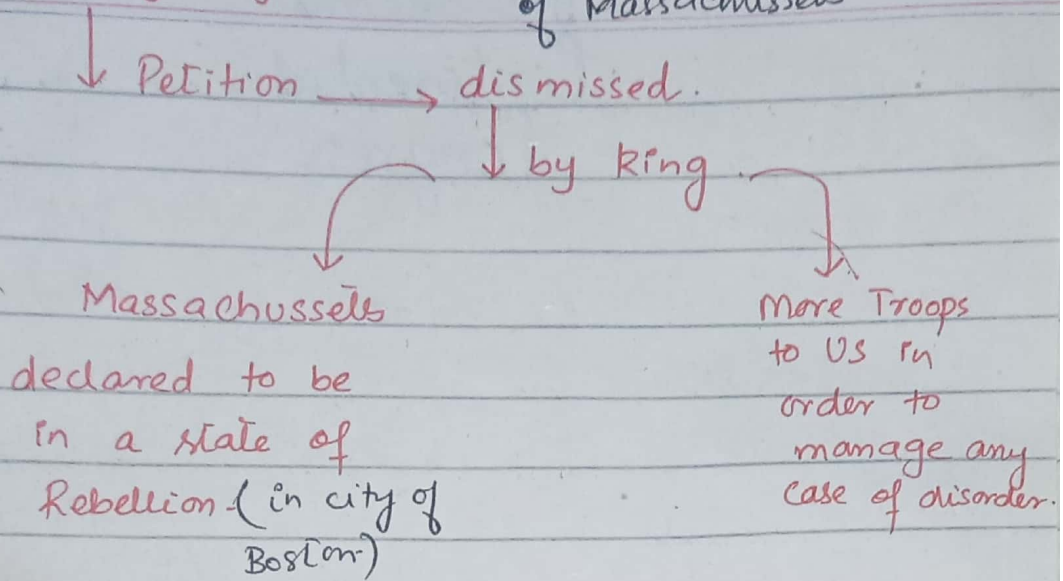 of Massachusset
Petition → dismissed.
↓ by King
Massachussetts
declared to be
in a state of
Rebellion (in city of
Boston)
More Troops
to US in
order to
manage any
case of disorder.